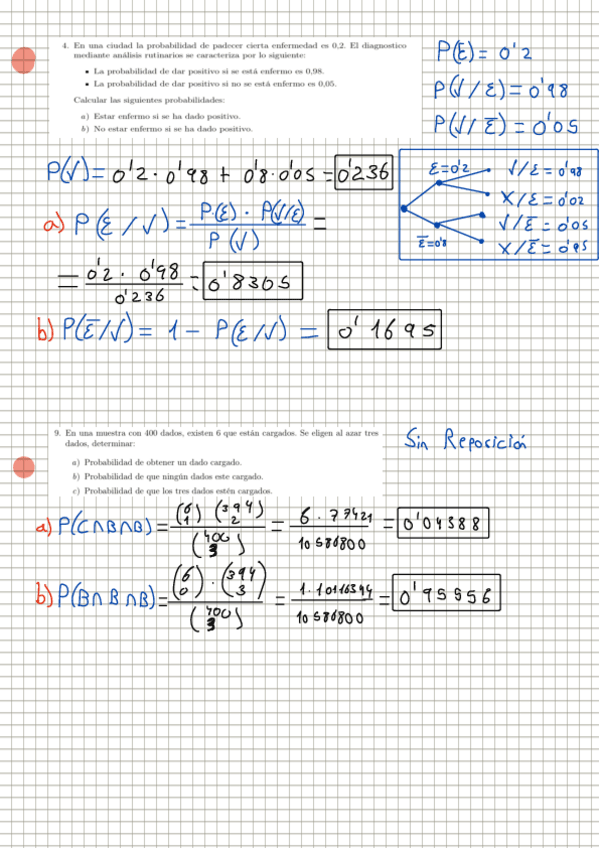 4. En una ciudad la probabilidad de padecer cierta enfermedad es 0,2. El diagnostico
mediante análisis rutinarios se caracteriza por lo siguiente:
• La probabilidad de dar positivo si se está enfermo es 0,98.
• La probabilidad de dar positivo si no se está enfermo es 0,05.
Calcular las siguientes probabilidades:
a) Estar enfermo si se ha dado positivo.
b) No estar enfermo si se ha dado positivo.
P(E) = 0'2
P(√/E) = 0'98
P(√/E̅) = 0'05
P(√) = 0'2 · 0'98 + 0'8 · 0'05 = 0'236
E=0'2 √/E = 0'98
X/E = 0'02
√/E̅ = 0'05
E̅=0'8 X/E̅ = 0'95
a) P(E/√) = P(E) · P(√/E) / P(√) =
= 0'2 · 0'98 / 0'236 = 0'8305
b) P(E̅/√) = 1 - P(E/√) = 0'1695
9. En una muestra con 400 dados, existen 6 que están cargados. Se eligen al azar tres
dados, determinar:
a) Probabilidad de obtener un dado cargado.
b) Probabilidad de que ningún dados este cargado.
c) Probabilidad de que los tres dados estén cargados.
Sin Reposición
a) P(C∩B∩B) = (6 1) (394 2) / (400 3) = 6 · 77421 / 10586800 = 0'04388
b) P(B∩B∩B) = (6 0) · (394 3) / (400 3) = 1 · 10116344 / 10586800 = 0'95556